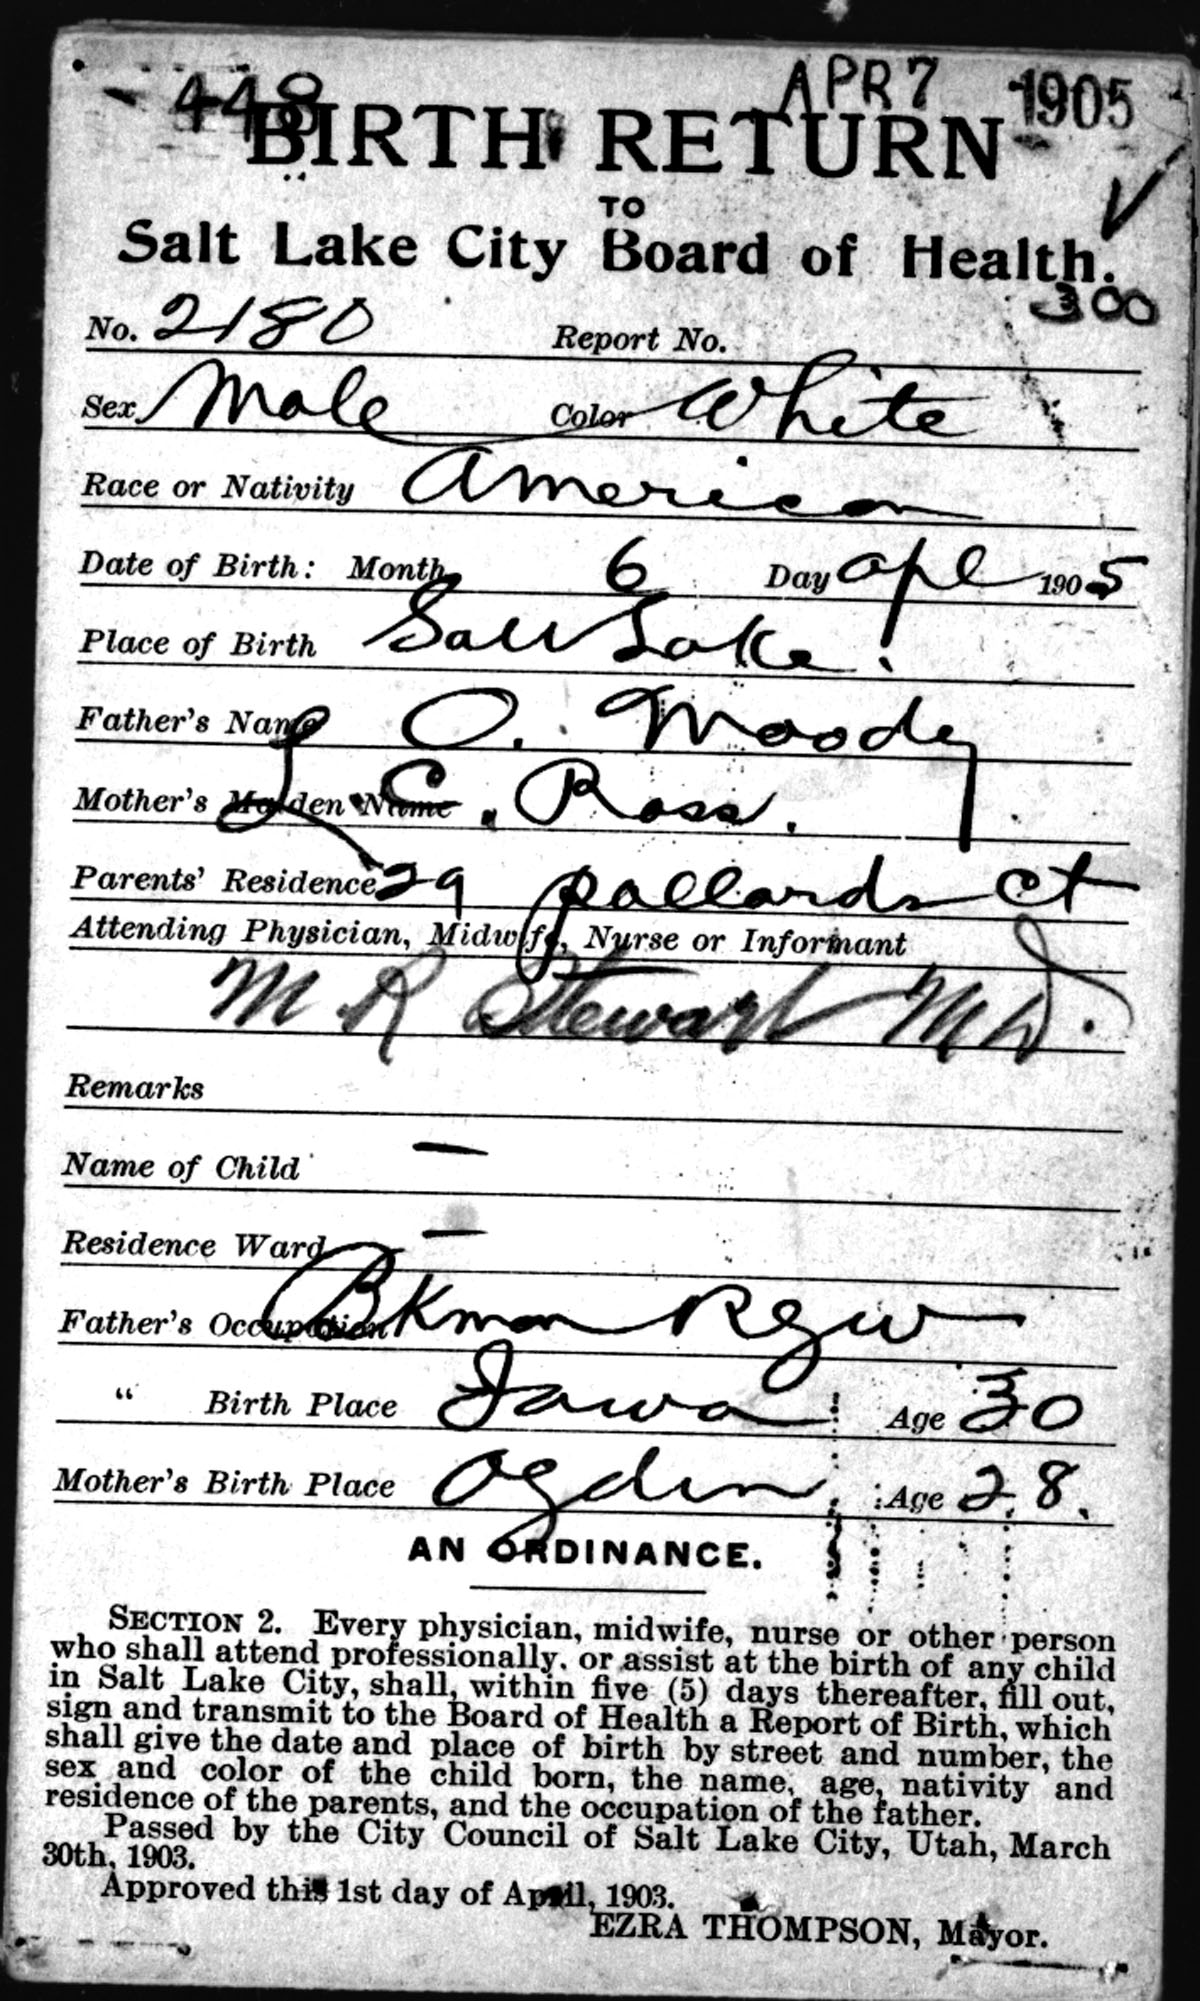 448 APR 7 1905
BIRTH RETURN
TO
Salt Lake City Board of Health.
300
No. 2180 Report No.
Sex Male Color White
Race or Nativity American
Date of Birth: Month 6 Day Apl 1905
Place of Birth Salt Lake.
Father's Name O. Moody
Mother's Maiden Name L. C. Ross.
Parents' Residence 29 Pallards Ct
Attending Physician, Midwife, Nurse or Informant
M R Stewart MD.
Remarks
Name of Child —
Residence Ward —
Father's Occupation Bkman RGW
" Birth Place Iowa Age 30
Mother's Birth Place Ogden Age 28.
AN ORDINANCE.
SECTION 2. Every physician, midwife, nurse or other person
who shall attend professionally, or assist at the birth of any child
in Salt Lake City, shall, within five (5) days thereafter, fill out,
sign and transmit to the Board of Health a Report of Birth, which
shall give the date and place of birth by street and number, the
sex and color of the child born, the name, age, nativity and
residence of the parents, and the occupation of the father.
Passed by the City Council of Salt Lake City, Utah, March
30th, 1903.
Approved this 1st day of April, 1903.
EZRA THOMPSON, Mayor.